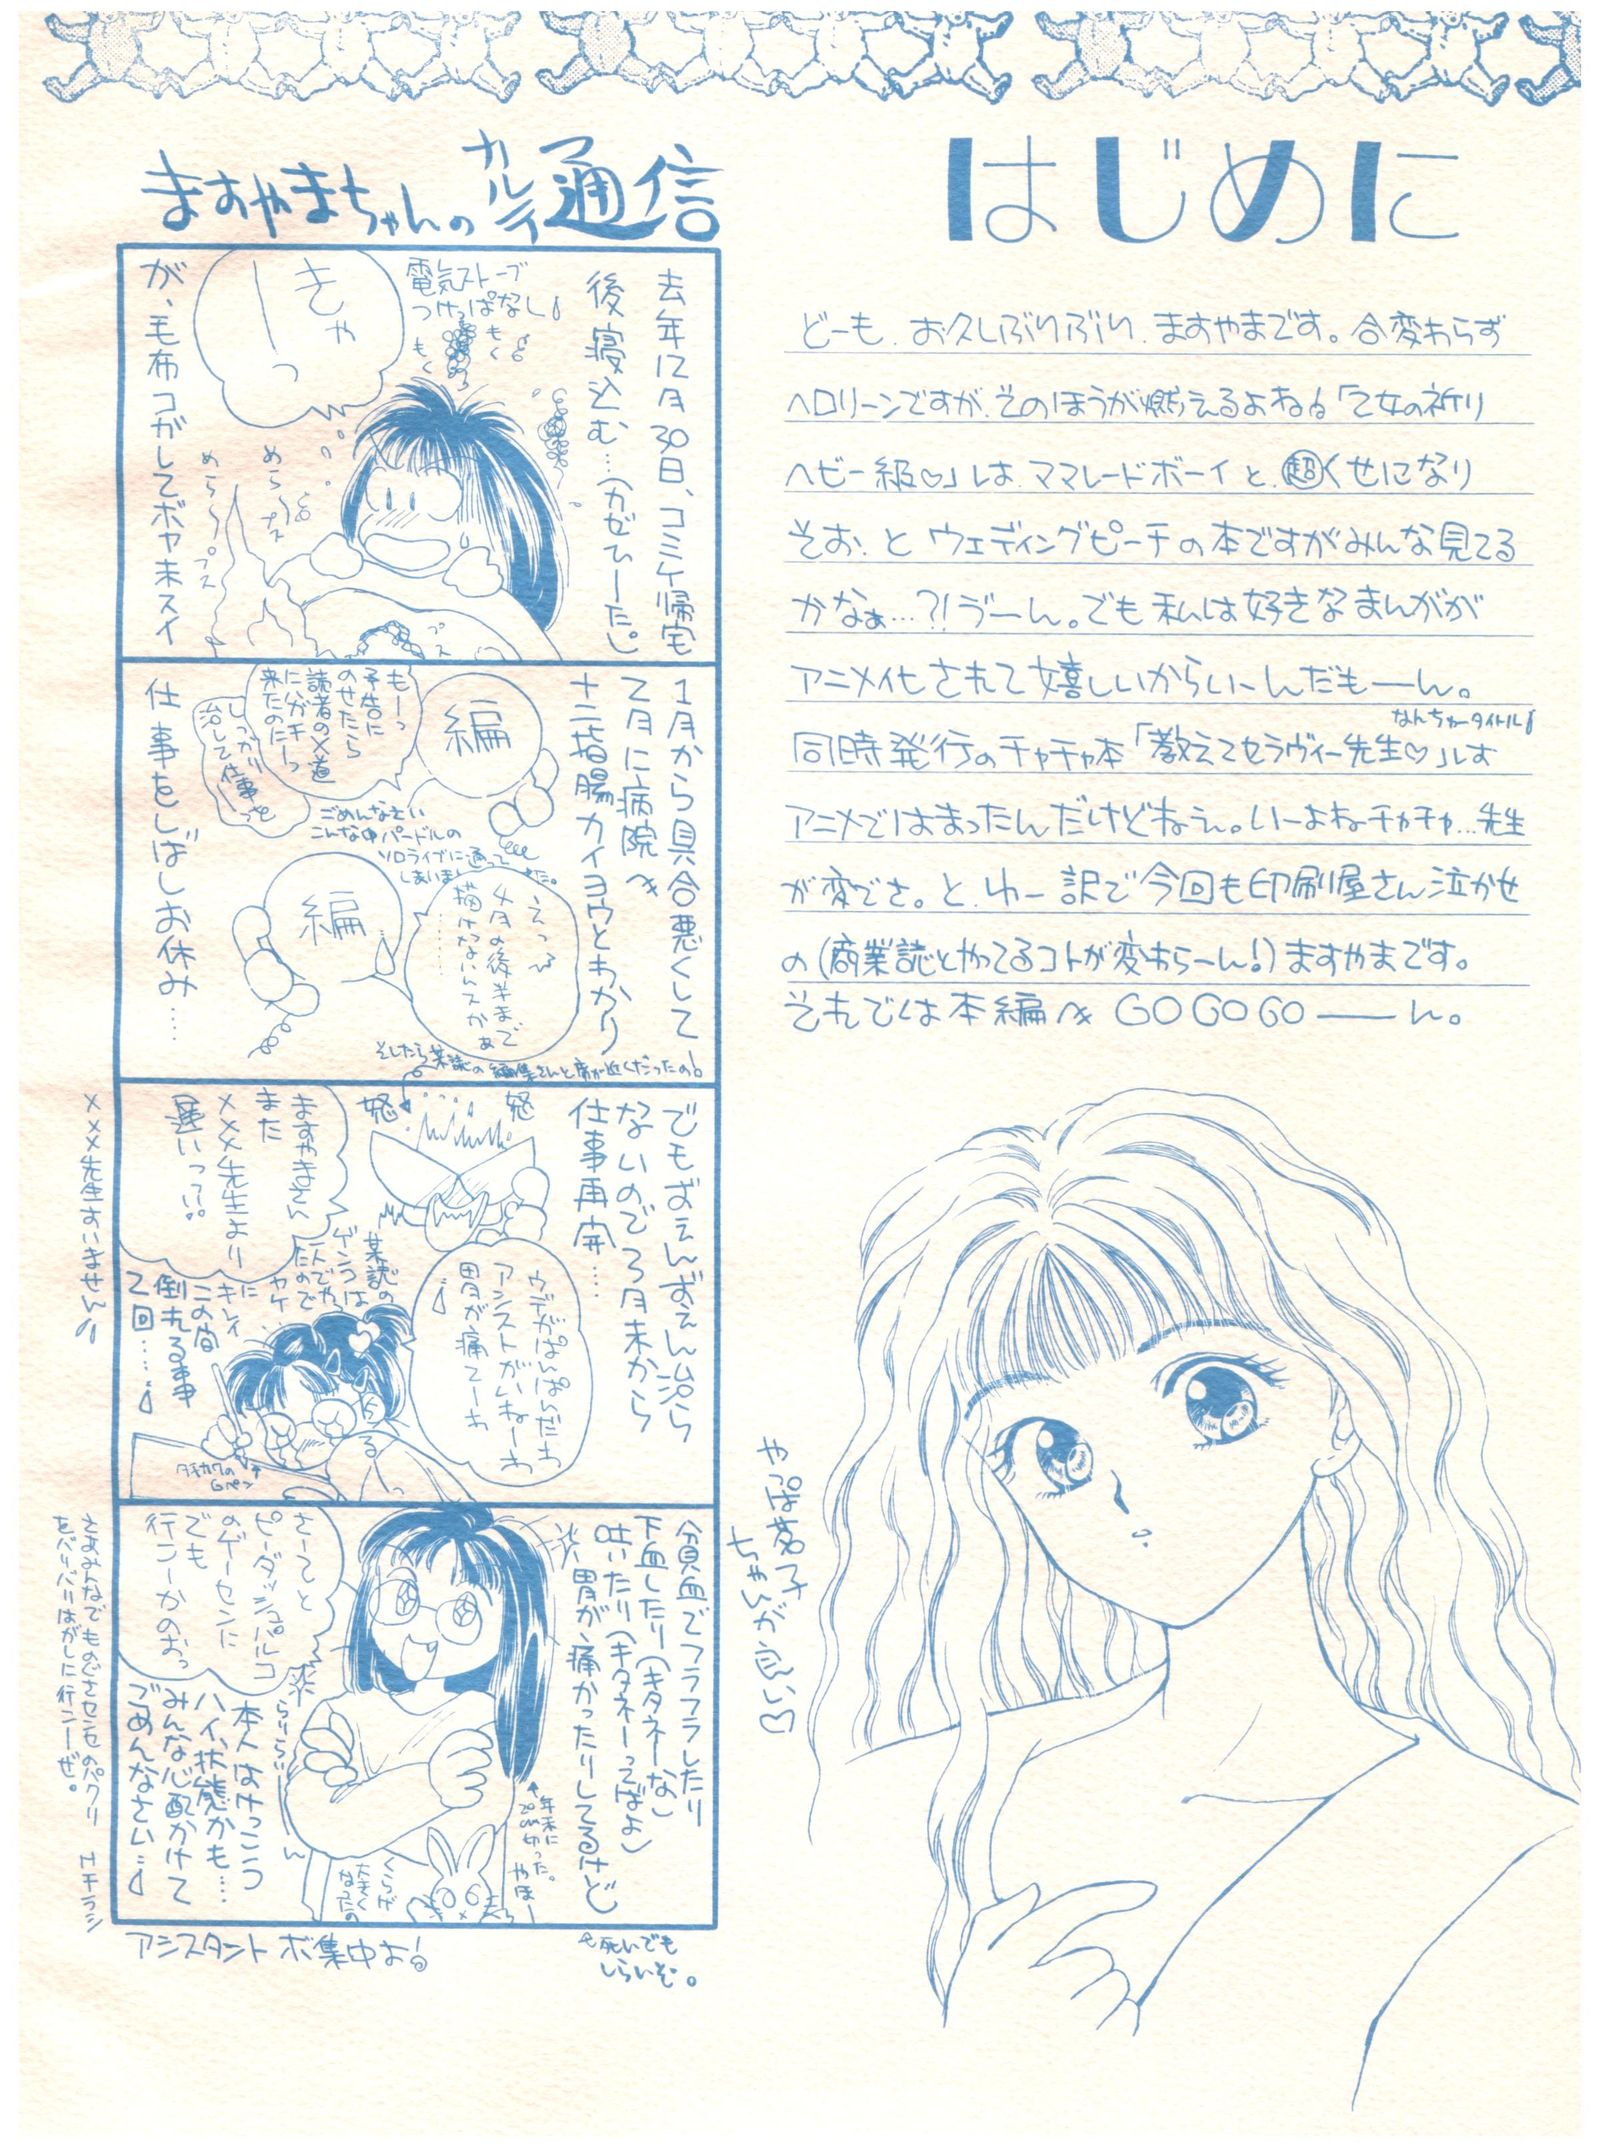 はじめに
どーも、お久しぶりぶり、ますやまです。合変わらず
ヘロリーンですが、そのほうが燃えるよね。「乙女の祈り
ヘビー級♡」は、ママレードボーイと、超くせになり
そお、と ウェディングピーチの本ですがみんな見てる
かなぁ…?!ゔーん。でも私は好きなまんがが
アニメ化されて嬉しいからいーんだもーん。
なんちゅータイトル
同時発行のチャチャ本「教えてセラヴィー先生♡」は
アニメではまったんだけどねぇ。いーよねチャチャ…先生
が変でさ。と、ゆー訳で今回も印刷屋さん泣かせ
の(商業誌とやってるコトが変わらーん!)ますやまです。
それでは本編へ GO GO GO ――ん。
やっぱ茗子
ちゃんが良い♡
ますやまちゃんのカルテ通信
去年12月30日、コミケ帰宅
後寝込む…(かぜひーたし)
電気ストーブ
つけっぱなし
もく
もく
きゃ
ーっ
めらっ
めらっ
ブス
ブス
ブス
が、毛布コガしてボヤ未スイ
1月から具合悪くして
2月に病院へ
十二指腸カイヨウとわかり
編
もーっ
予告に
のせたら
読者の×道
にハガキーっ
来たのにー
しっかり
治して仕事を
ごめんなさい
こんな中バードルの
ソロライブに通って
しまいました。
えっ
4月の後半まで
描けないんスかぁ
………
編
仕事をしばしお休み……
でもずぇんずぇん治ら
ないので3月末から
仕事再開…
そしたら某誌の編集さんと席が近くだったの
怒
怒
ますやまさん
また
×××先生より
遅いって…
ウデがぱんぱんだわ
アシストがいねーわ
胃が痛てーわ
某誌の
ゲンコウは
一人でや
たので
ヤケ
に
キレイ
この間
倒れる事
2回……
タチカワの
Gペン
×××先生すいません
貧血でフラフラしたり
下血したり(キタネーな)
吐いたり(キタネーってばよ)
胃が痛かったりしてるけど
さーてと
ピーダッシュパルコ
のゲーセンに
でも
行こーかのおっ
年末に
20cm切った。
やほー
くらげ
大きく
なったの
本人はけっこう
ハイ状態かも……
みんな心配かけて
ごめんなさい…
さあみんなでものぶさセンセのパクリ
をバリバリはがしに行こーぜ。
アシスタントボ集中よ
死いでも
しらいぞ。